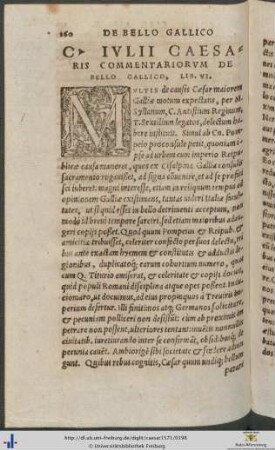 160 DE BELLO GALLICO
C IVLII CAESA-
RIS COMMENTARIORVM DE
BELLO GALLICO, LIB. VI.
MVLTIS de causis Cæsar maiorem
Galliæ motum expectans, per M.
Syllanum, C. Antistium Reginum,
T. Sextilium legatos, delectum ha-
bere instituit. Simul ab Cn. Pom-
peio proconsule petit, quoniam i-
pse ad urbem cum imperio Reipu-
blicæ causa maneret, quos ex Cisalpina Gallia consulis
sacramento rogauisset, ad signa conuenire, et ad se profici
sci iuberet: magni interesse, etiam in reliquum tempus ad
opinionem Galliæ existimans, tantas uideri Italiæ faculta
tates, ut si quid esset in bello detrimenti acceptum, non
modo id breui tempore sarciri, sed etiam maioribus adau-
geri copijs posset. Quod quum Pompeius & Reipub. &
amicitiæ tribuisset, celeriter confecto per suos delectu, tri
bus ante exactam hyemem & constitutis & adductis le-
gionibus, duplicatoq; earum cohortium numero, quas
cum Q. Titurio amiserat, & celeritate & copijs docuit,
quid populi Romani disciplina atque opes possent.
ad eius propinquos a Treuiris im-
perium defertur. illi finitimos atq; Germanos sollicitare,
& pecuniam polliceri non desistunt: cum ab proximis im
petrare non possent, ulteriores tentant: inuentis nonnullis
ciuitatib. iureiurando inter se confirmāt, obsidibusq; de
pecunia cauēt. Ambiorigē sibi societate & fœdere adiun
gunt. Quibus rebus cognitis, Cæsar quum undiq; bellum
parari
http://dl.ub.uni-freiburg.de/diglit/caesar1571/0196
© Universitätsbibliothek Freiburg